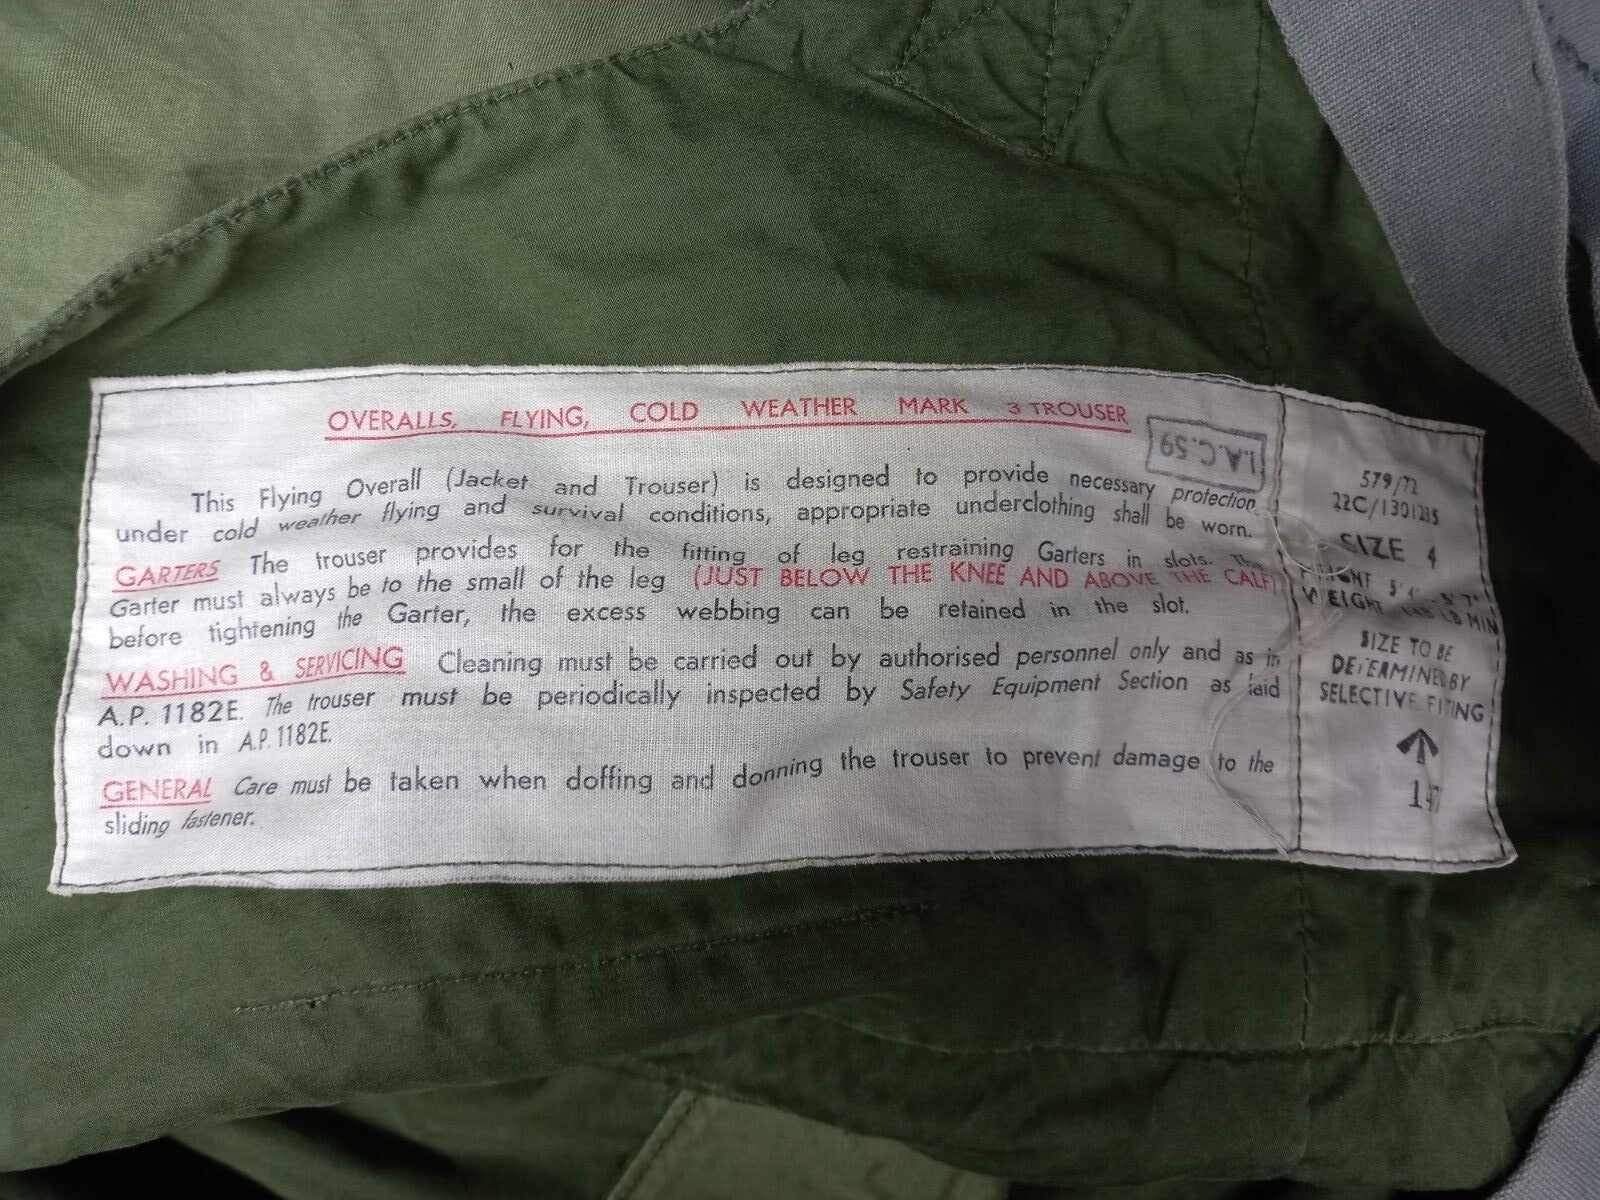 OVERALLS, FLYING, COLD WEATHER MARK 3 TROUSER
I.A.C.59
This Flying Overall (Jacket and Trouser) is designed to provide necessary protection
under cold weather flying and survival conditions, appropriate underclothing shall be worn.
GARTERS The trouser provides for the fitting of leg restraining Garters in slots. The
Garter must always be to the small of the leg (JUST BELOW THE KNEE AND ABOVE THE CALF)
before tightening the Garter, the excess webbing can be retained in the slot.
WASHING & SERVICING Cleaning must be carried out by authorised personnel only and as in
A.P. 1182E. The trouser must be periodically inspected by Safety Equipment Section as laid
down in A.P. 1182E.
GENERAL Care must be taken when doffing and donning the trouser to prevent damage to the
sliding fastener.
579/72
22C/1301285
SIZE 4
WEIGHT LB MIN
SIZE TO BE
DETERMINED BY
SELECTIVE FITTING